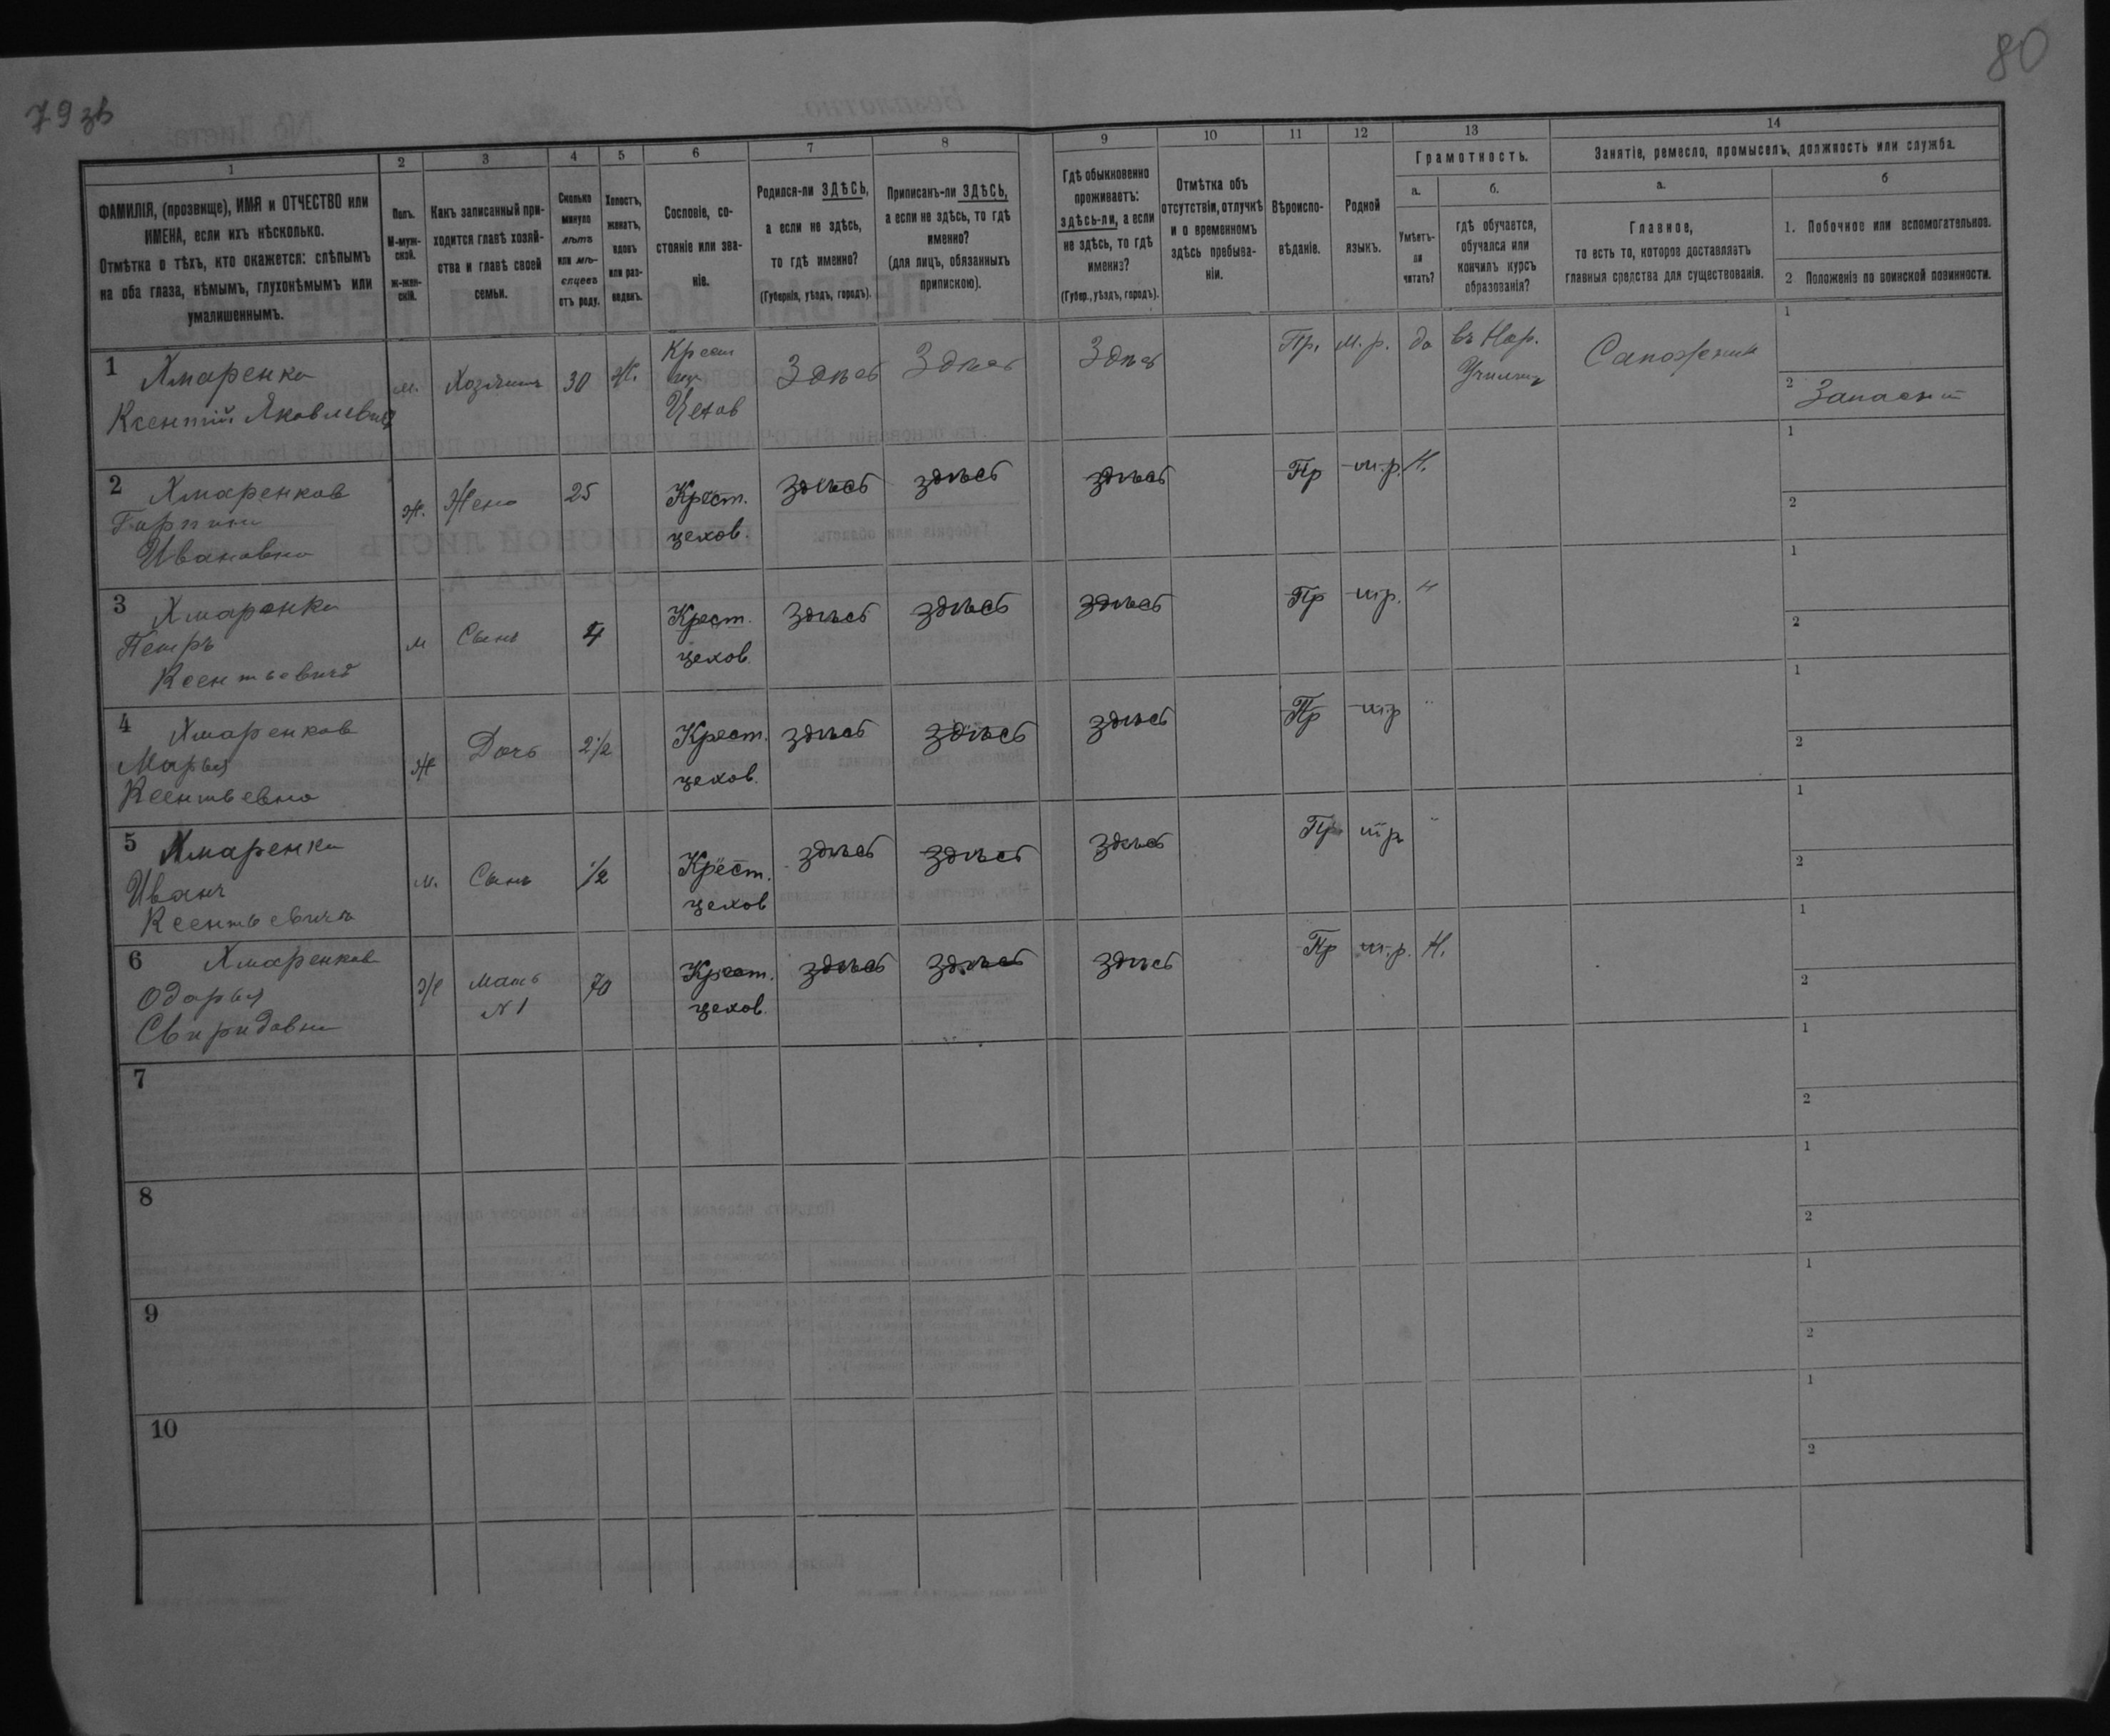 79 зв
80
1 2 3 4 5 6 7 8 9 10 11 12 13 14
ФАМИЛІЯ, (прозвище), ИМЯ и ОТЧЕСТВО или
ИМЕНА, если ихъ нѣсколько.
Отмѣтка о тѣхъ, кто окажется: слѣпымъ
на оба глаза, нѣмымъ, глухонѣмымъ или
умалишеннымъ.
Полъ.
М-муж-
ской.
ж-жен-
скій.
Какъ записанный при-
ходится главѣ хозяй-
ства и главѣ своей
семьи.
Сколько
минуло
лѣтъ
или мѣ-
сяцевъ
отъ роду.
Холостъ,
женатъ,
вдовъ
или раз-
веденъ.
Сословіе, со-
стояніе или зва-
ніе.
Родился-ли ЗДѢСЬ,
а если не здѣсь,
то гдѣ именно?
(Губернія, уѣздъ, городъ).
Приписанъ-ли ЗДѢСЬ,
а если не здѣсь, то гдѣ
именно?
(для лицъ, обязанныхъ
припискою).
Гдѣ обыкновенно
проживаетъ:
здѣсь-ли, а если
не здѣсь, то гдѣ
именно?
(Губер., уѣздъ, городъ).
Отмѣтка объ
отсутствіи, отлучкѣ
и о временномъ
здѣсь пребыва-
ніи.
Вѣроиспо-
вѣданіе.
Родной
языкъ.
Грамотность.
а.
Умѣетъ-
ли
читать?
б.
гдѣ обучается,
обучался или
кончилъ курсъ
образованія?
Занятіе, ремесло, промыселъ, должность или служба.
а.
Главное,
то есть то, которое доставляетъ
главныя средства для существованія.
б
1. Побочное или вспомогательное.
2 Положеніе по воинской повинности.
1 Хмаренко
Ксентій Яковлевичъ
м. Хозяинъ 30 Ж.
Крест
Цехов
Здѣсь Здѣсь Здѣсь Пр. м.р. да
въ Нар.
Училищ
Сапожник
1
2 Запасный
2 Хмаренкова
Гарпина
Ивановна
ж. Жена 25
Крест.
цехов.
здѣсь здѣсь здѣсь Пр м.р. Н.
1
2
3 Хмаренко
Петръ
Ксентьевичъ
м Сынъ 4
Крест.
цехов.
здѣсь здѣсь здѣсь Пр м.р. "
1
2
4 Хмаренкова
Марья
Ксентьевна
ж Дочь 2 1/2
Крест.
цехов.
здѣсь здѣсь здѣсь Пр м.р "
1
2
5 Хмаренко
Иванъ
Ксентьевичъ
м. Сынъ 1/2
Крест.
цехов
здѣсь здѣсь здѣсь Пр м.р "
1
2
6 Хмаренкова
Одарья
Свиридовна
ж
мать
N 1
70
Крест.
цехов.
здѣсь здѣсь здѣсь Пр м.р. Н.
1
2
7
1
2
8
1
2
9
1
2
10
1
2